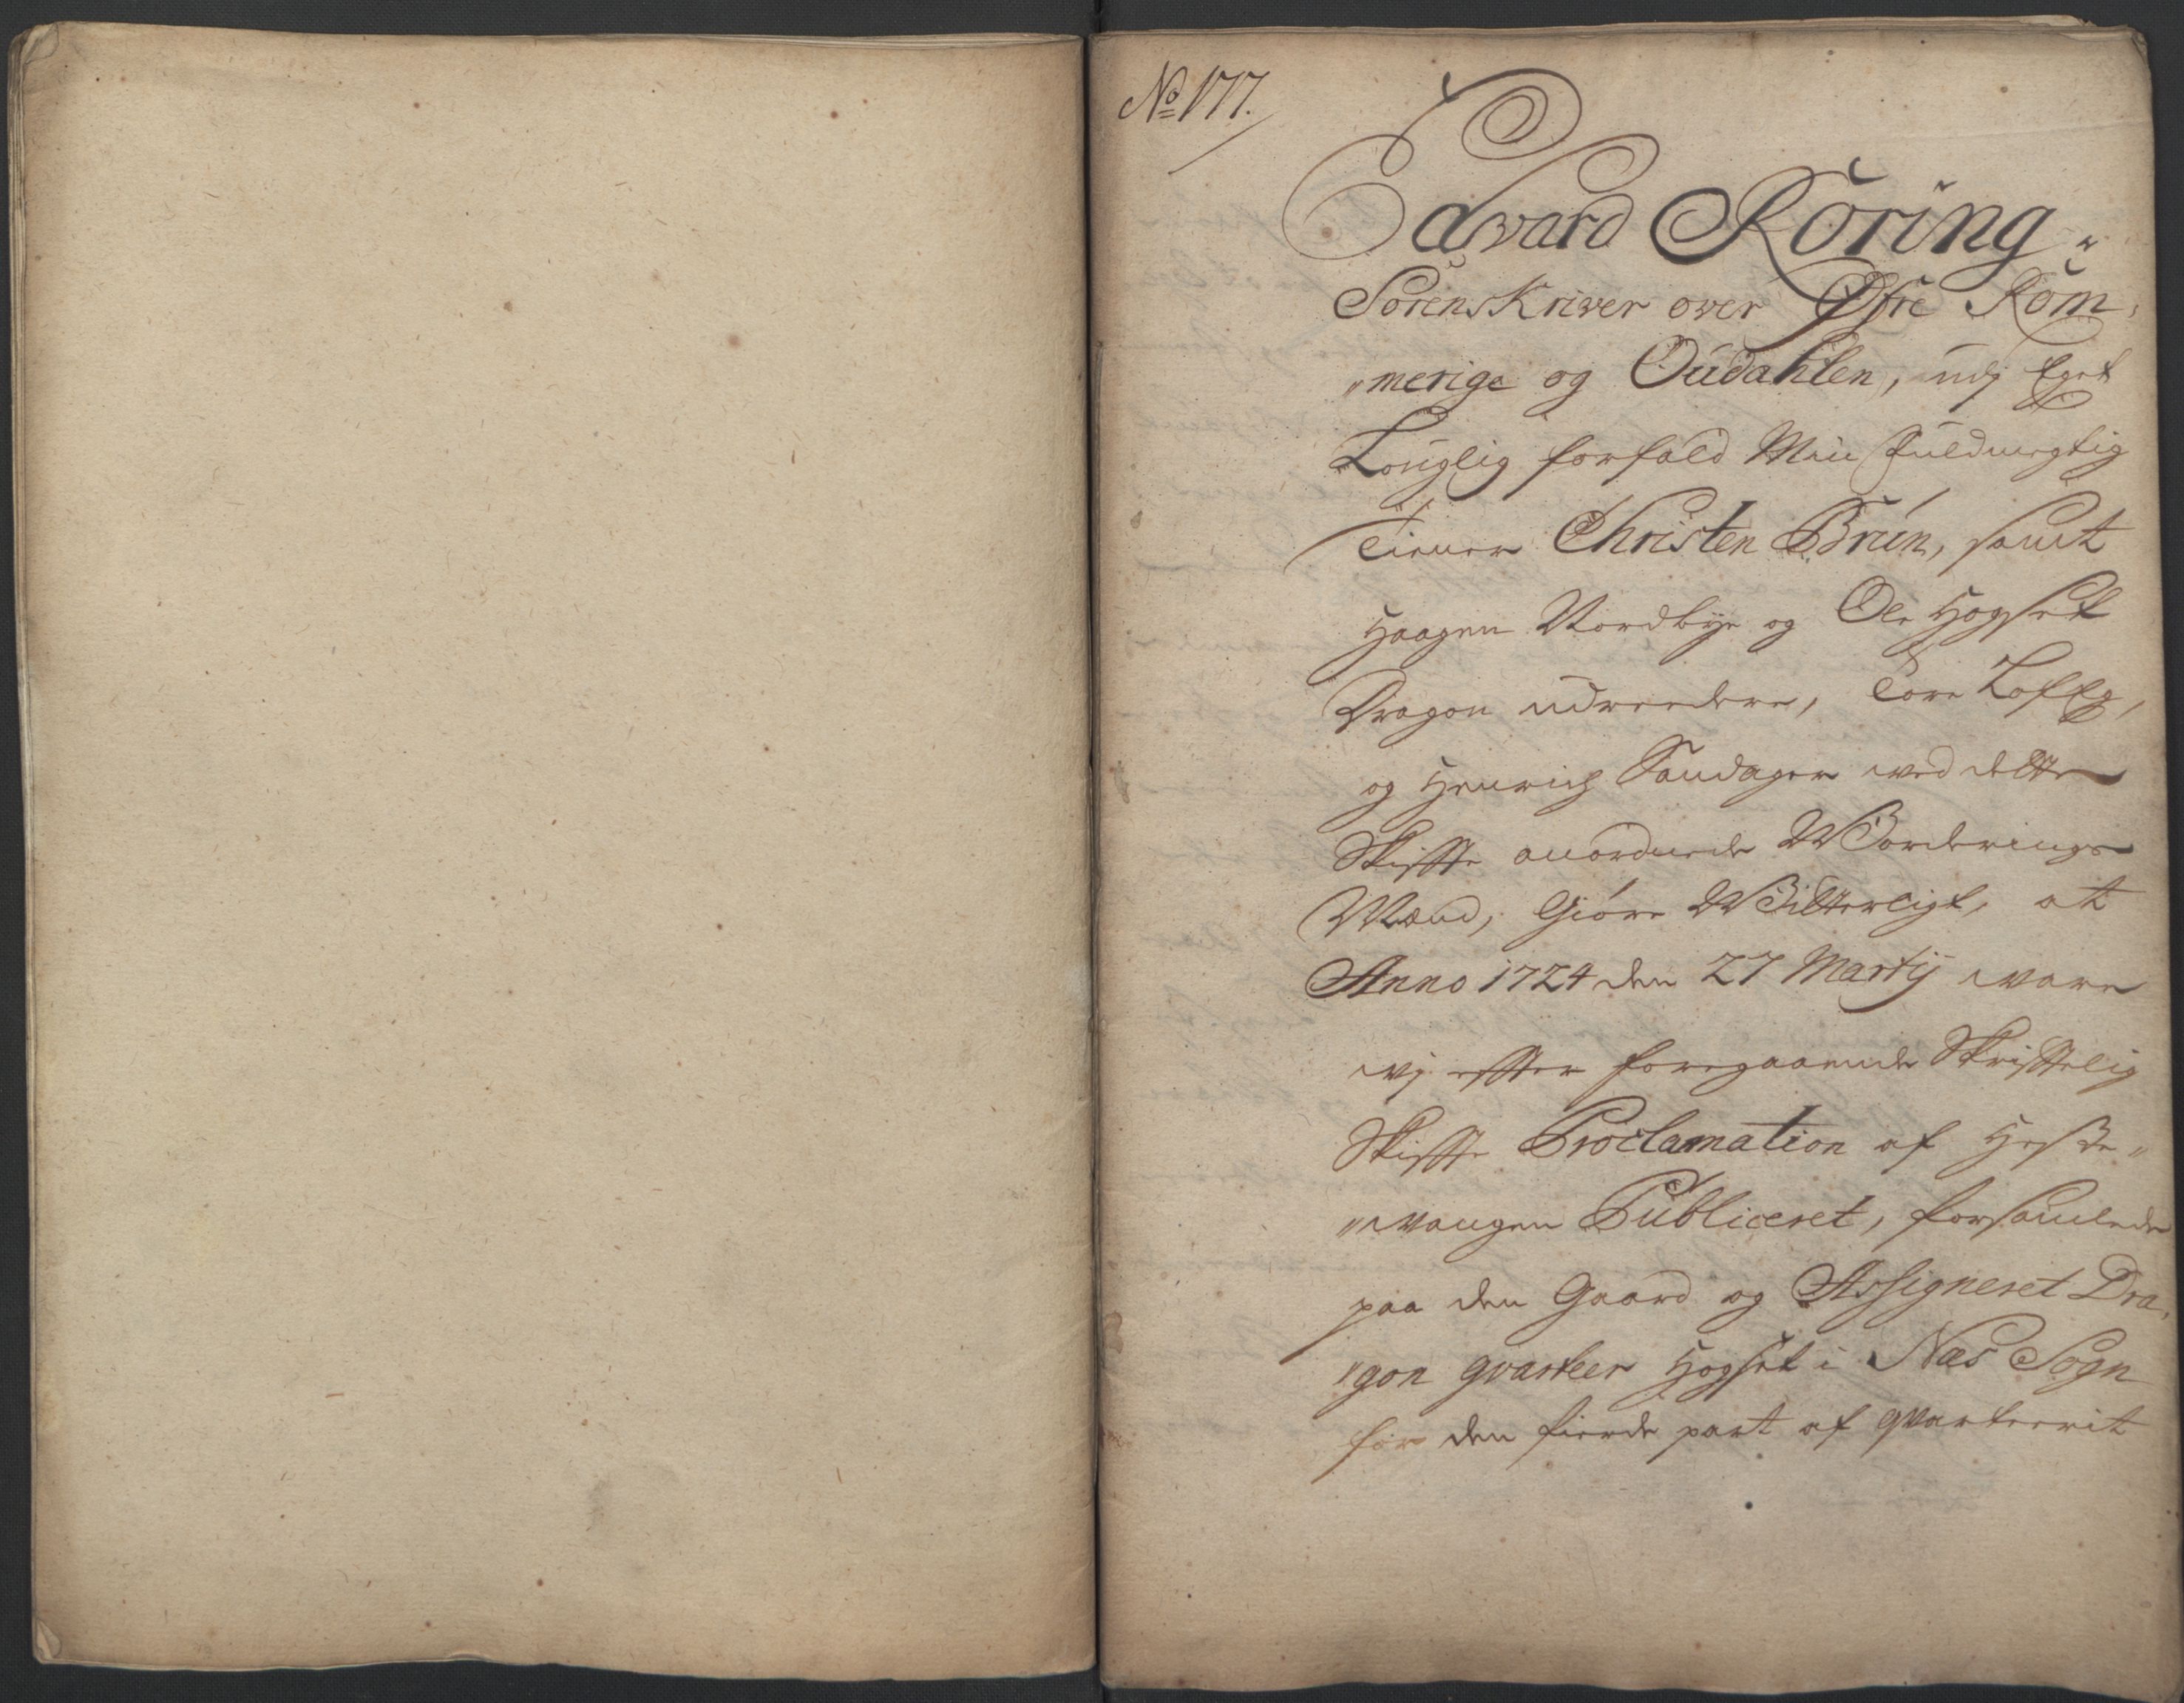 No 177.
Edvard Röring
Sorenskriver over Øfre Rom,
„merige og Oudahlen, udj Eget
Louglig forfald Min Fuldmegtig
Tiener Christen Brun, samt
Haagen Nordbye og Ole Hogset
Dragon udreedere, Tore Loeg,
og Henrich Sandager ved dette
Skiffte anordnede Worderings
Mænd, Giøre Witterligt, at
Anno 1724 den 27 Martij ware
wj effter foregaaende Skrifftelig
Skiffte Proclamation af
„wangen Publiceret, forsamlede
paa den Gaard og Assigneret Dra,
„gon qvarteer Hogset i Næs Sogn
for den fierde part af qvarterit